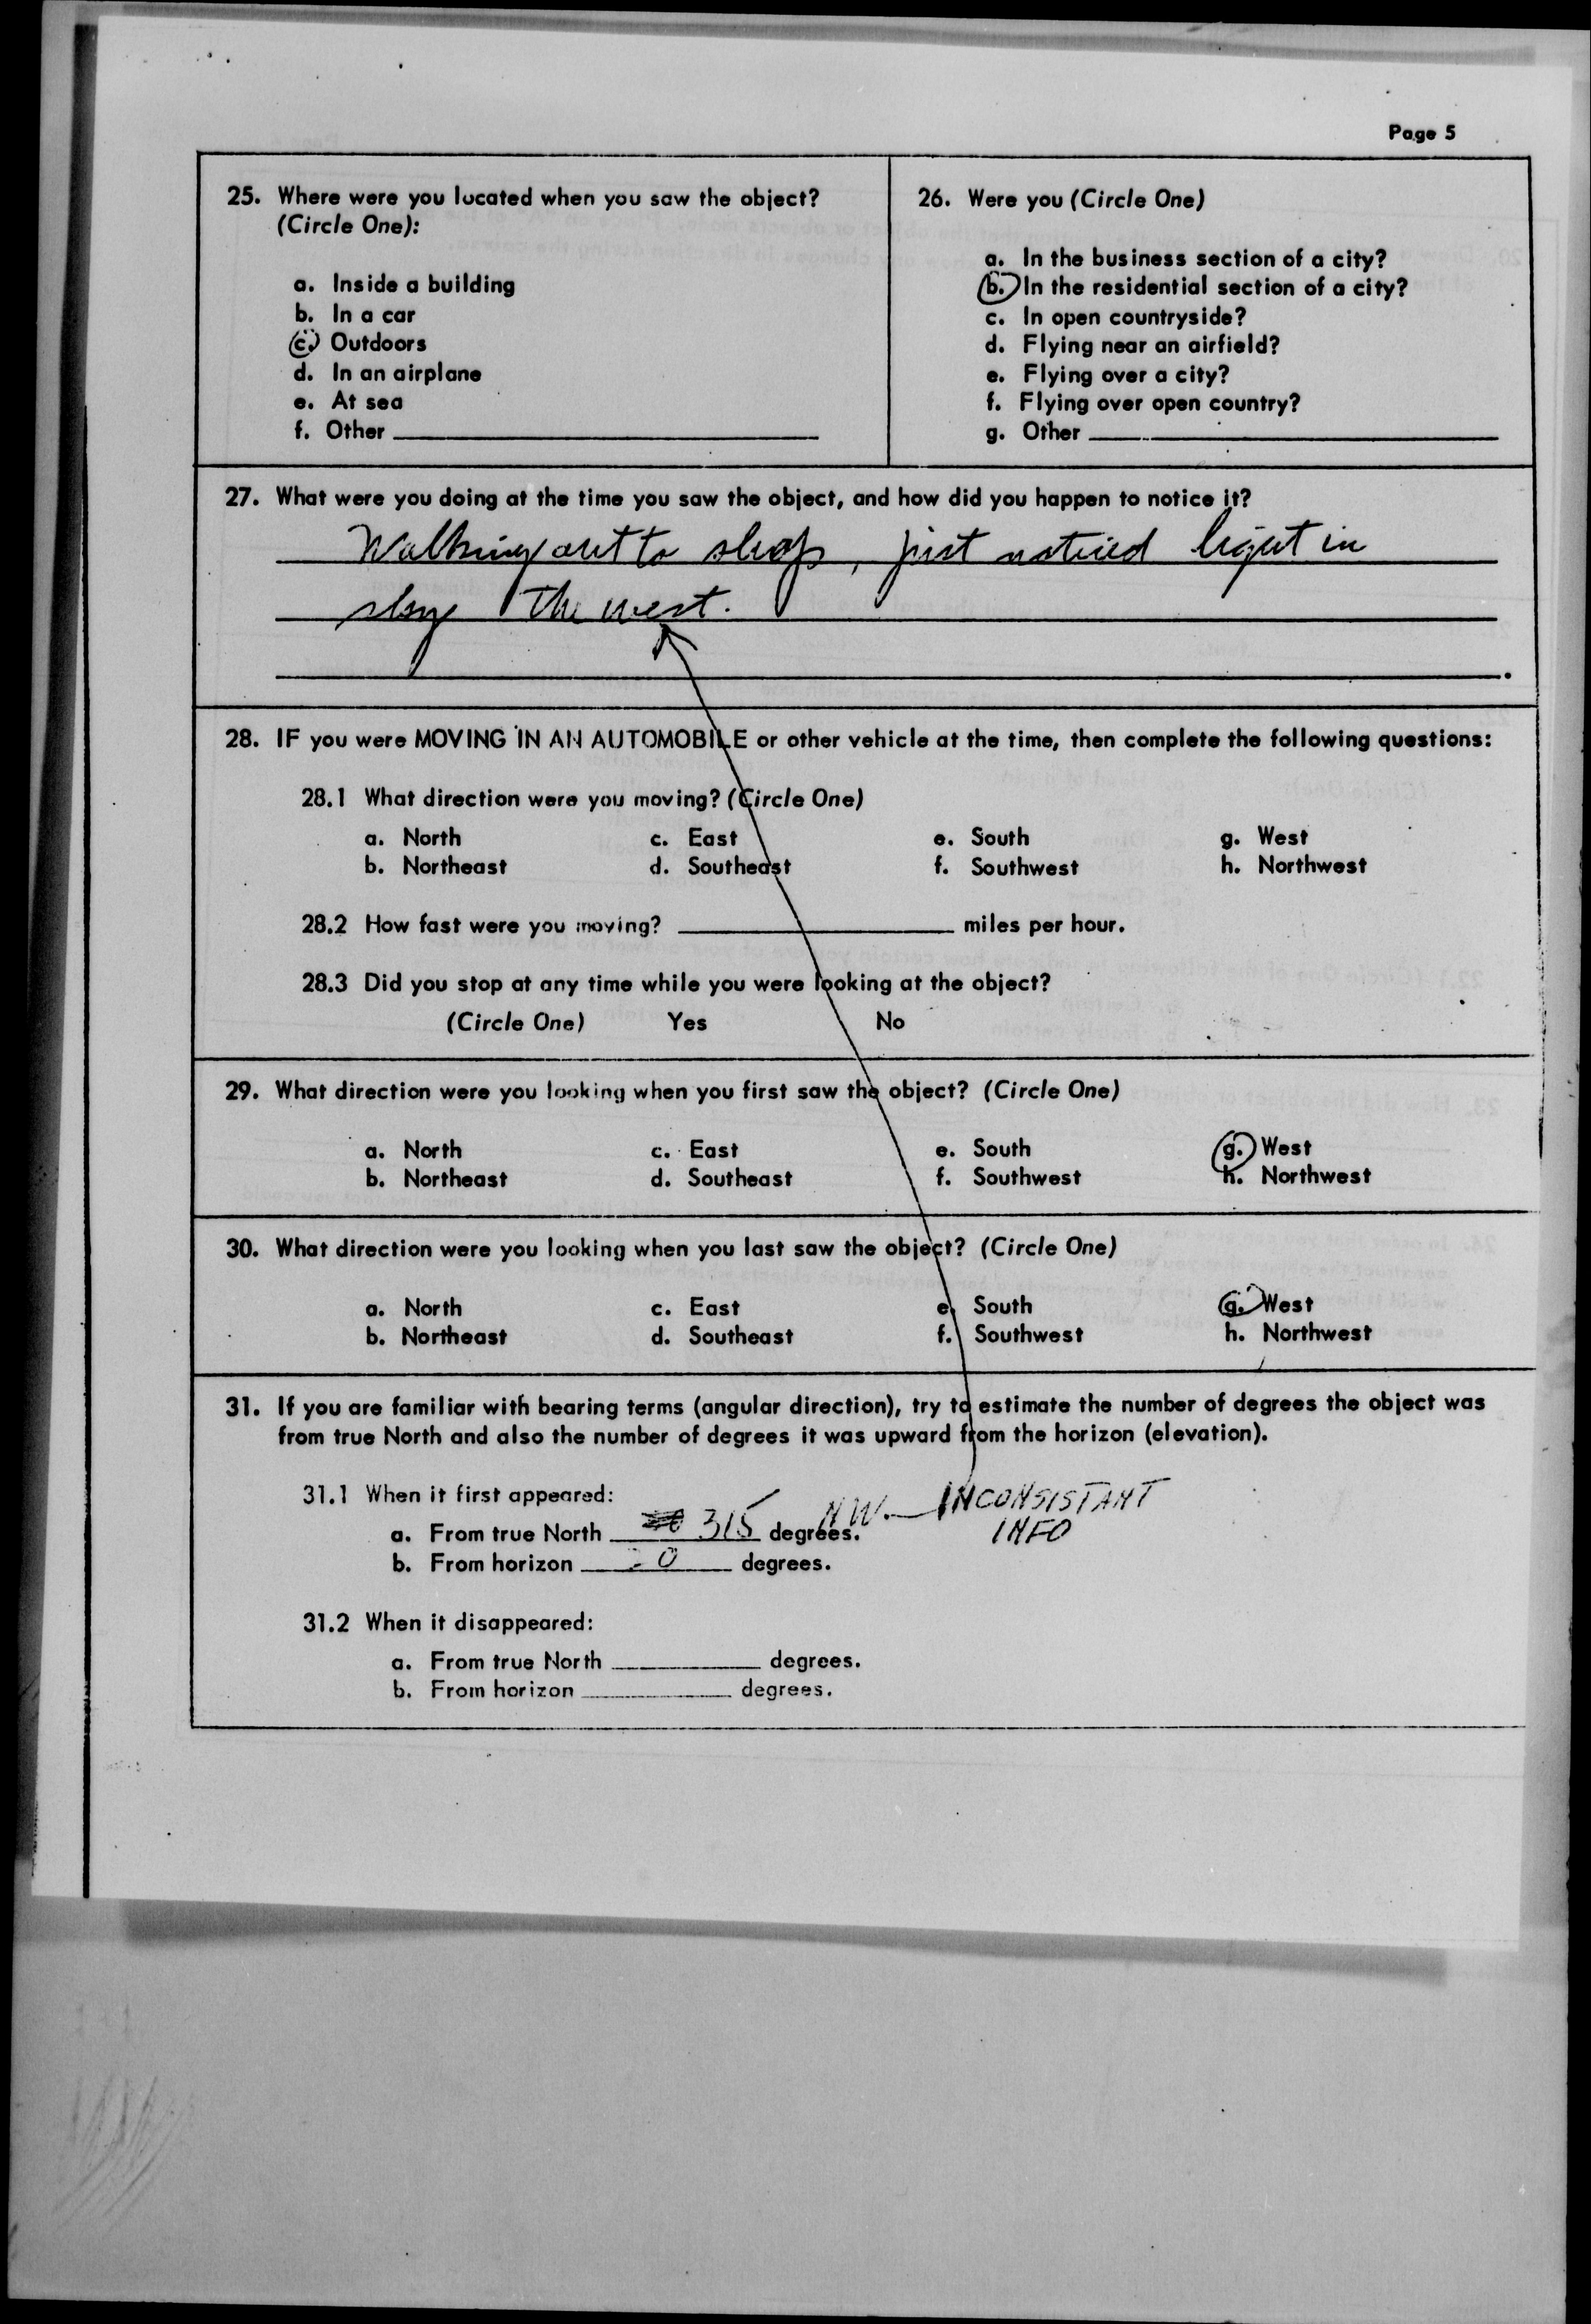 Page 5
25. Where were you located when you saw the object?
(Circle One):
a. Inside a building
b. In a car
c. Outdoors
d. In an airplane
e. At sea
f. Other
26. Were you (Circle One)
a. In the business section of a city?
b. In the residential section of a city?
c. In open countryside?
d. Flying near an airfield?
e. Flying over a city?
f. Flying over open country?
g. Other
27. What were you doing at the time you saw the object, and how did you happen to notice it?
Walking out to shop, just noticed light in
sky the west.
28. IF you were MOVING IN AN AUTOMOBILE or other vehicle at the time, then complete the following questions:
28.1 What direction were you moving? (Circle One)
a. North c. East e. South g. West
b. Northeast d. Southeast f. Southwest h. Northwest
28.2 How fast were you moving? miles per hour.
28.3 Did you stop at any time while you were looking at the object?
(Circle One) Yes No
29. What direction were you looking when you first saw the object? (Circle One)
a. North c. East e. South g. West
b. Northeast d. Southeast f. Southwest h. Northwest
30. What direction were you looking when you last saw the object? (Circle One)
a. North c. East e. South g. West
b. Northeast d. Southeast f. Southwest h. Northwest
31. If you are familiar with bearing terms (angular direction), try to estimate the number of degrees the object was
from true North and also the number of degrees it was upward from the horizon (elevation).
31.1 When it first appeared:
a. From true North 315 degrees. NW. — INCONSISTANT
INFO
b. From horizon degrees.
31.2 When it disappeared:
a. From true North degrees.
b. From horizon degrees.